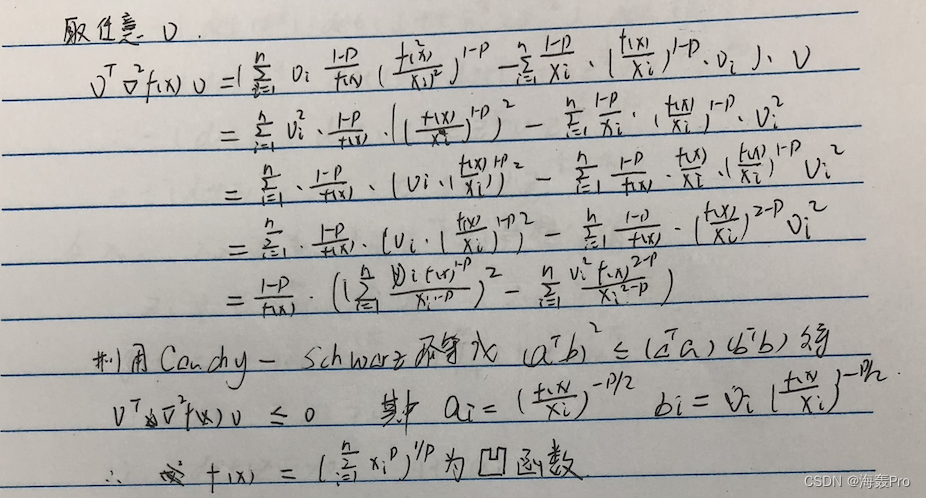 取任意 υ.
υᵀ∇²f(x)υ = (∑_{i=1}^{n} υi \frac{1-p}{f(x)} (\frac{f(x)^2}{xi^2})^{1-p} - ∑_{i=1}^{n} \frac{1-p}{xi} · (\frac{f(x)}{xi})^{1-p} · υi) · υ
= ∑_{i=1}^{n} υi^2 · \frac{1-p}{f(x)} · ((\frac{f(x)}{xi})^{1-p})^2 - ∑_{i=1}^{n} \frac{1-p}{xi} · (\frac{f(x)}{xi})^{1-p} · υi^2
= ∑_{i=1}^{n} · \frac{1-p}{f(x)} · (υi · (\frac{f(x)}{xi})^{1-p})^2 - ∑_{i=1}^{n} \frac{1-p}{f(x)} · \frac{f(x)}{xi} · (\frac{f(x)}{xi})^{1-p} υi^2
= ∑_{i=1}^{n} · \frac{1-p}{f(x)} · (υi · (\frac{f(x)}{xi})^{1-p})^2 - ∑_{i=1}^{n} \frac{1-p}{f(x)} · (\frac{f(x)}{xi})^{2-p} υi^2
= \frac{1-p}{f(x)} · ((∑_{i=1}^{n} \frac{υi f(x)^{1-p}}{xi^{1-p}})^2 - ∑_{i=1}^{n} \frac{υi^2 f(x)^{2-p}}{xi^{2-p}})
利用 Cauchy - Schwarz 不等式 (aᵀb)² ≤ (aᵀa)(bᵀb) 得
υᵀ∇²f(x)υ ≤ 0 其中 ai = (\frac{f(x)}{xi})^{-p/2} bi = υi (\frac{f(x)}{xi})^{1-p/2}.
∴ f(x) = (∑_{i=1}^{n} xi^p)^{1/p} 为凹函数
CSDN @海轰Pro